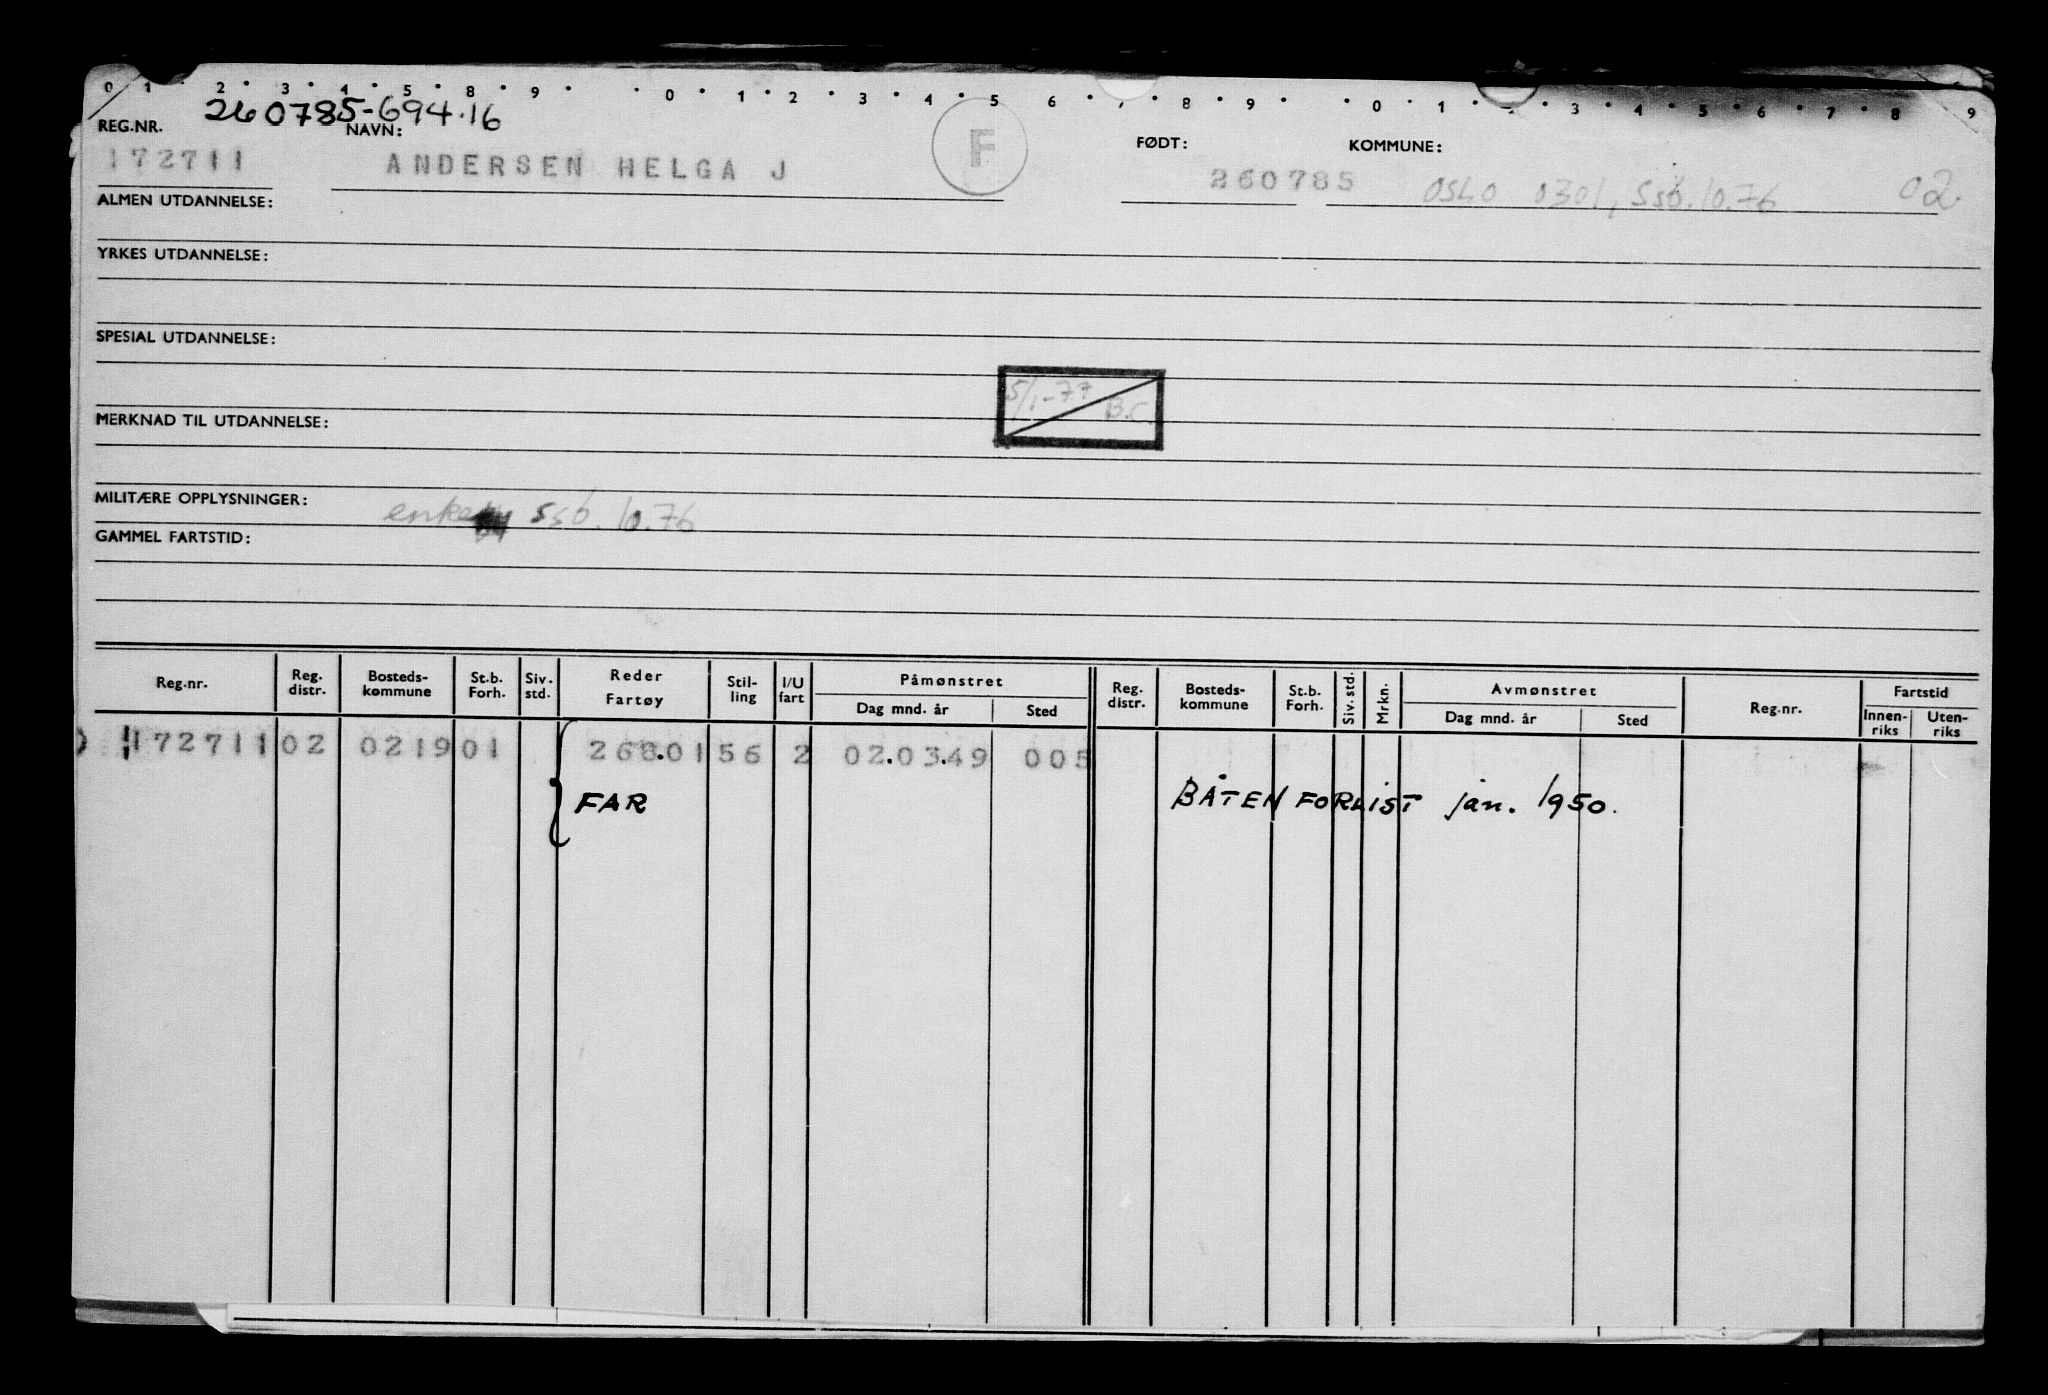 0 1 · 2 · 3 · 4 · 5 · 8 · 9 · · 0 · 1 · 2 · 3 · 4 · 5 6 · 7 · 8 · 9 · · 0 · 1 · 2 · 3 · 4 · 5 · 6 · 7 · 8 · 9
260785-694.16
REG.NR. NAVN: FØDT: KOMMUNE:
172711 ANDERSEN HELGA J F 260785 OSLO 0301, SSB.10.76 02
ALMEN UTDANNELSE:
YRKES UTDANNELSE:
SPESIAL UTDANNELSE:
5/1-77 B.C
MERKNAD TIL UTDANNELSE:
MILITÆRE OPPLYSNINGER: enke SSB. 10.76
GAMMEL FARTSTID:
Reg.nr. Reg. distr. Bosteds- kommune St.b. Forh. Siv. std. Reder Fartøy Stil- ling I/U fart Påmønstret Dag mnd. år Sted Reg. distr. Bosteds- kommune St.b. Forh. Siv. std. Mrkn. Avmønstret Dag mnd. år Sted Reg.nr. Fartstid Innen- riks Uten- riks
172711 02 0219 01 268.01 56 2 02.03.49 005
FAR BÅTEN FORLIST jan. 1950.